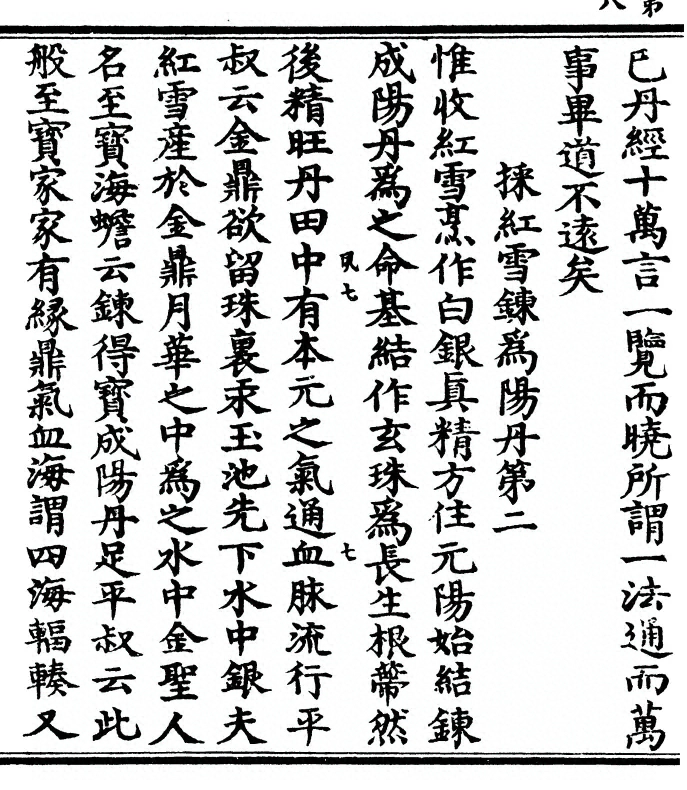 第八
巳丹經十萬言一覽而曉所謂一法通而萬
事畢道不遠矣
採紅雪鍊為陽丹第二
惟收紅雪烹作白銀眞精方住元陽始結鍊
成陽丹爲之命基結作玄珠爲長生根蔕然
夙七
七
後精旺丹田中有本元之氣通血脉流行平
叔云金鼎欲留珠裏汞玉池先下水中銀夫
紅雪産於金鼎月華之中爲之水中金聖人
名至寳海蟾云鍊得寳成陽丹足平叔云此
般至寳家家有緣鼎氣血海謂四海輻輳又